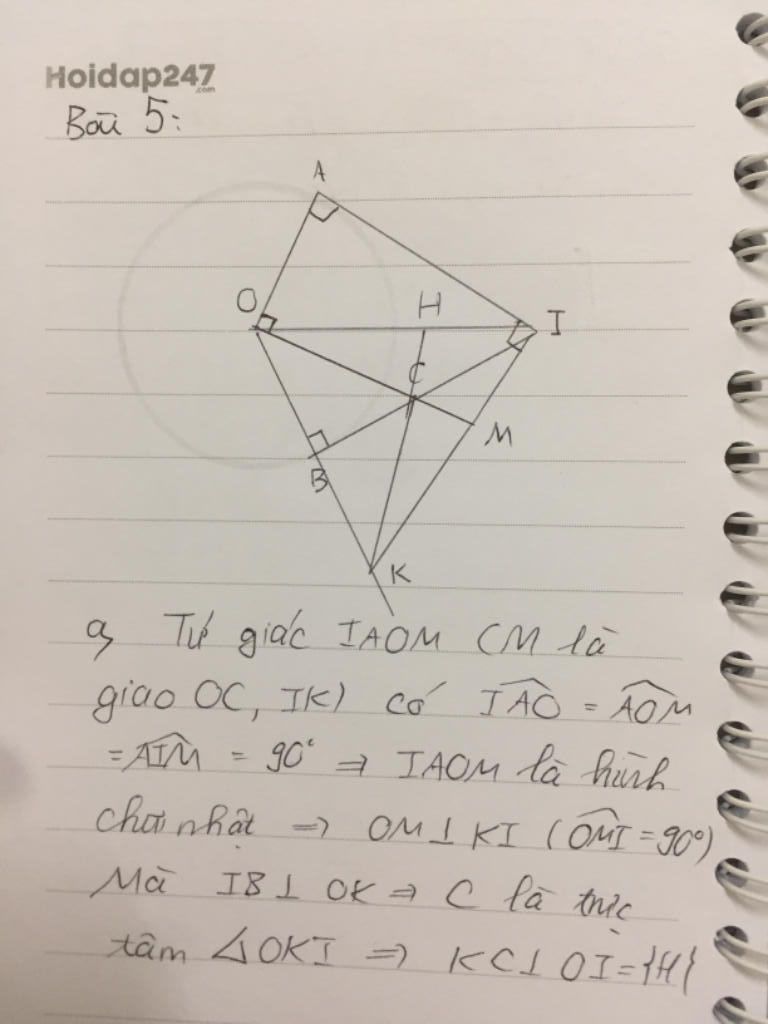 Hoidap247
.com
Bài 5:
A
O
H
I
C
M
B
K
a, Tứ giác IAOM (M là
giao OC, IK) có IAO = AOM
= AIM = 90° => IAOM là hình
chữ nhật => OM ⊥ KI (OMI = 90°)
Mà IB ⊥ OK => C là trực
tâm △OKI => KC ⊥ OI = {H}